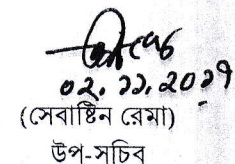 ০২.১১.২০১৭
(সেবাষ্টিন রেমা)
উপ-সচিব